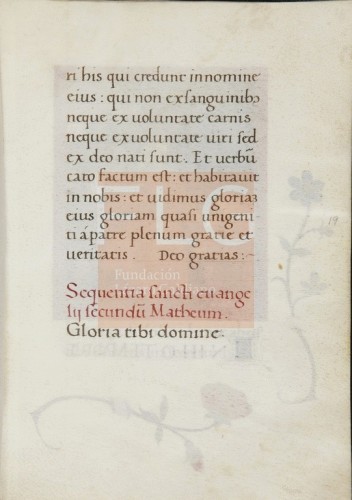 ri his qui credunt in nomine
eius : qui non ex sanguinibꝰ
neque ex uoluntate carnis
neque ex uoluntate uiri sed
ex deo nati sunt . Et uerbū
caro factum est : et habitauit
in nobis : et uidimus gloriaꝫ
eius gloriam quasi unigeni
ti á patre plenum gratie et
ueritatis . Deo gratias : -
Sequentia sancti euange
lij secundū Matheum .
Gloria tibi domine .
19
FLC
Fundación